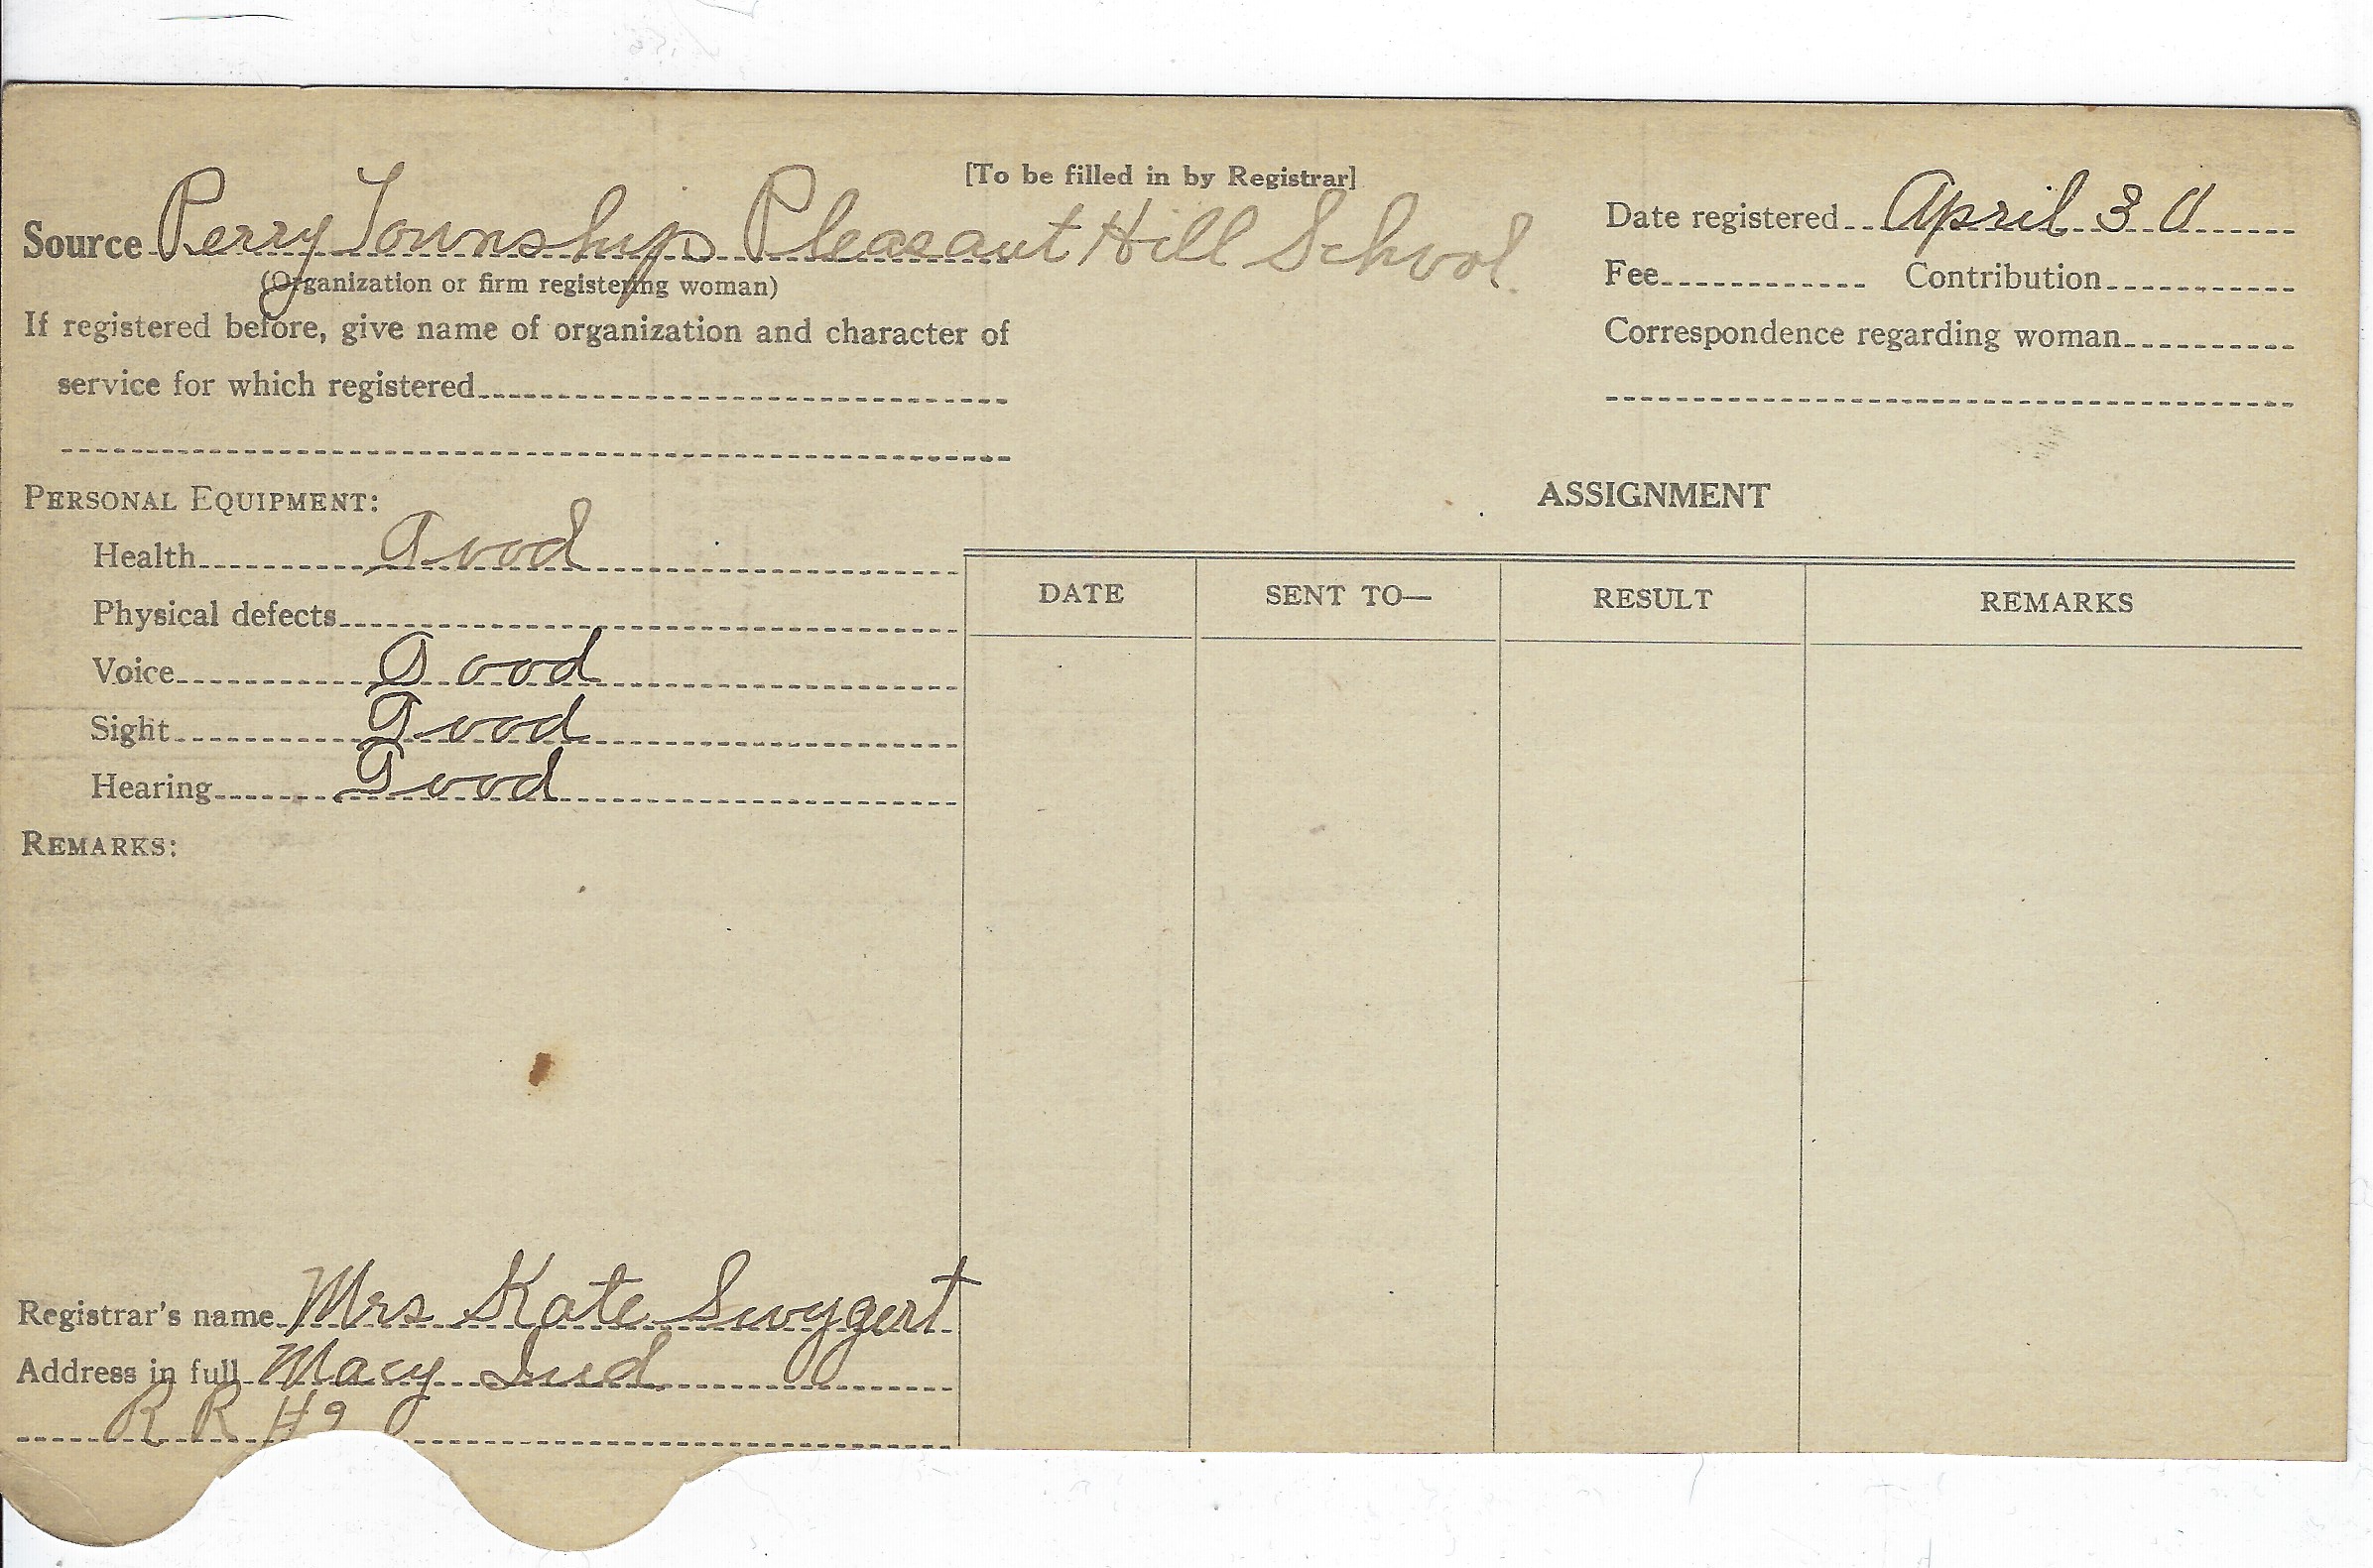 [To be filled in by Registrar]
Source Perry Township Pleasant Hill School
(Organization or firm registering woman)
If registered before, give name of organization and character of
service for which registered
PERSONAL EQUIPMENT:
Health Good
Physical defects
Voice Good
Sight Good
Hearing Good
REMARKS:
Registrar's name Mrs Kate Swygert
Address in full Macy Ind
R R #
Date registered April 30
Fee Contribution
Correspondence regarding woman
ASSIGNMENT
DATE SENT TO— RESULT REMARKS